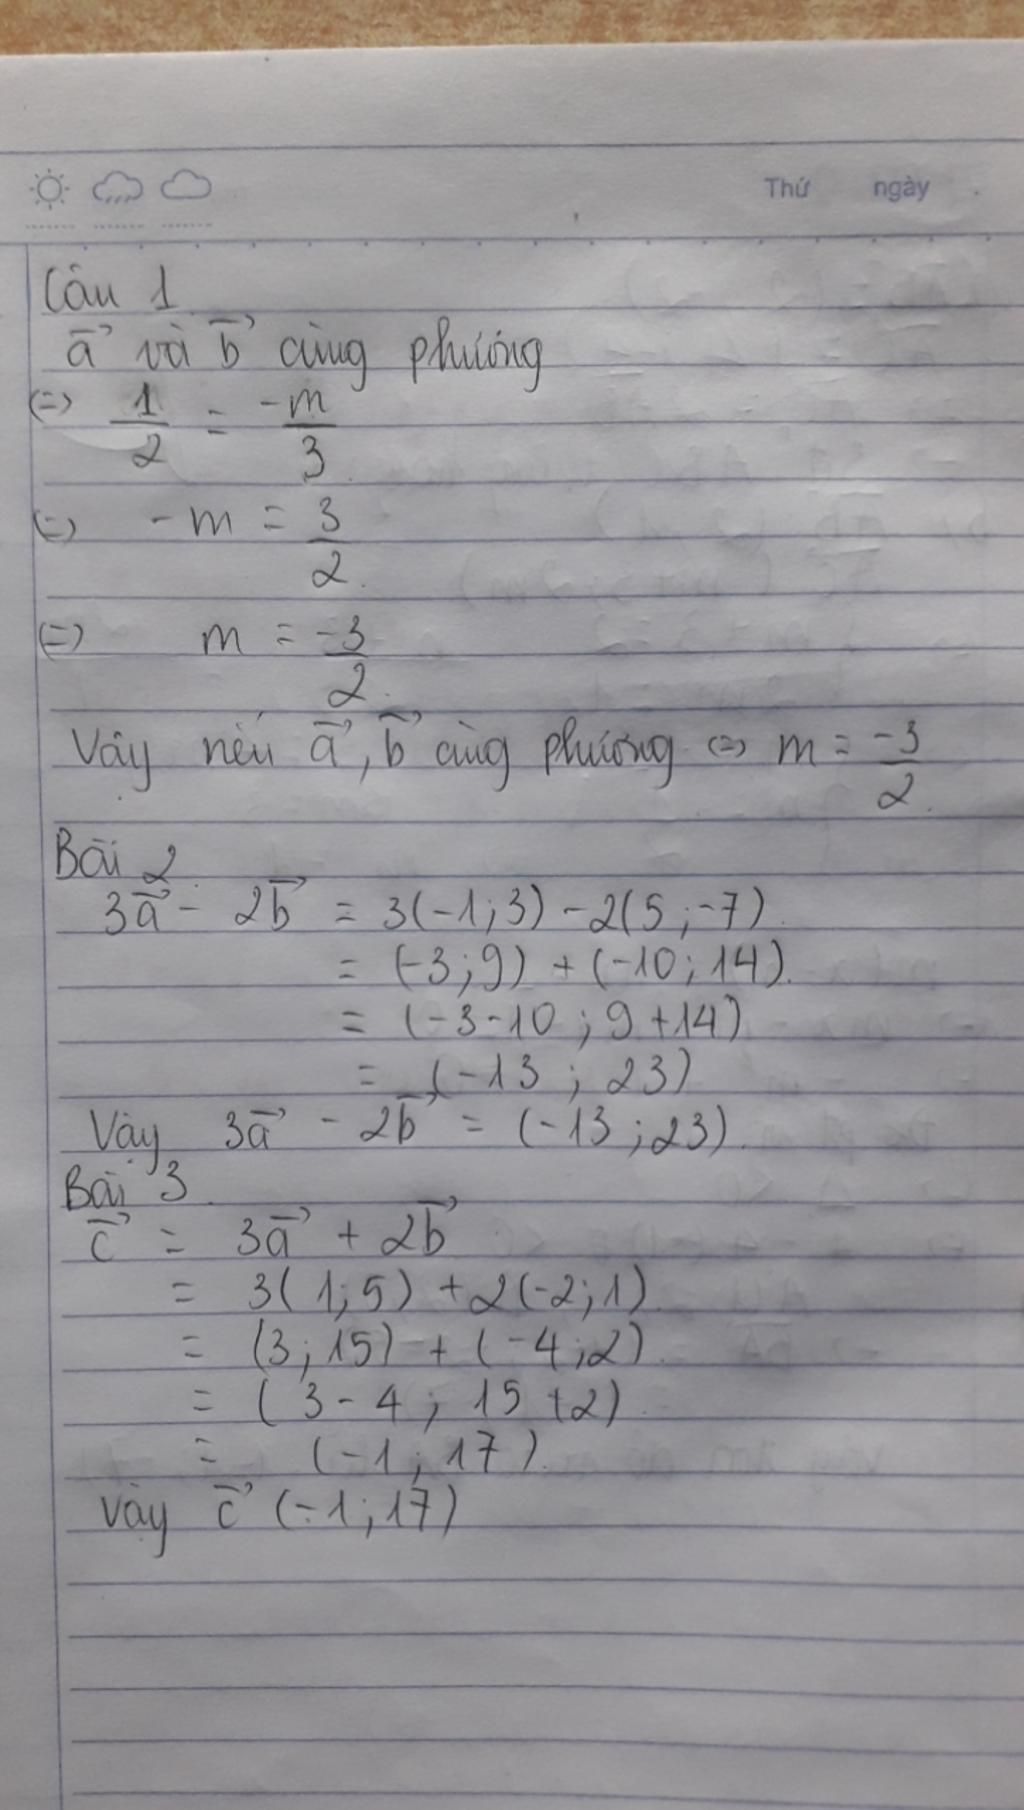 Thứ ngày
Câu 1
a⃗ và b⃗ cùng phương
(=) 1/2 = -m/3
(=) -m = 3/2.
(=) m = -3/2.
Vậy nếu a⃗, b⃗ cùng phương (=) m = -3/2.
Bài 2.
3a⃗ - 2b⃗ = 3(-1; 3) - 2(5; -7).
= (-3; 9) + (-10; 14).
= (-3-10; 9+14)
= (-13; 23)
Vậy 3a⃗ - 2b⃗ = (-13; 23).
Bài 3.
c⃗ = 3a⃗ + 2b⃗
= 3(1; 5) + 2(-2; 1).
= (3; 15) + (-4; 2).
= (3-4; 15+2).
= (-1; 17).
Vậy c⃗ (-1; 17)